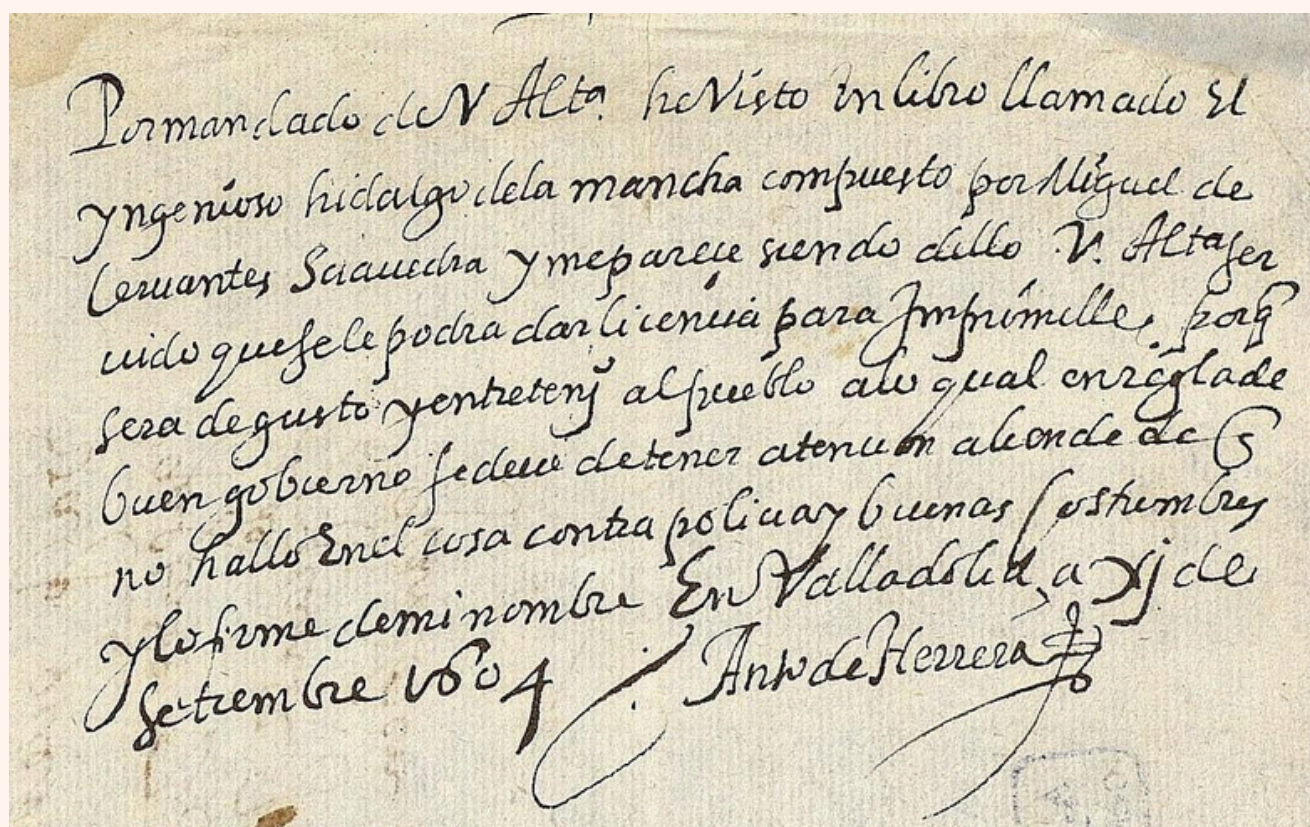 Por mandado de V Alta. he visto un libro llamado El
yngenioso hidalgo de la mancha compuesto por Miguel de
Cervantes Saavedra y me parece siendo dello V. Alta ser
uido que se le podra dar licencia para Imprimille, porq
sera de gusto y entretenj al pueblo a lo qual en regla de
buen gobierno se deue de tener atencion aliende de q
no hallo En el cosa contra policia y buenas Costumbres
y lo firme de mi nombre En Valladolid a xj de
setiembre 1604
Anto de Herrera